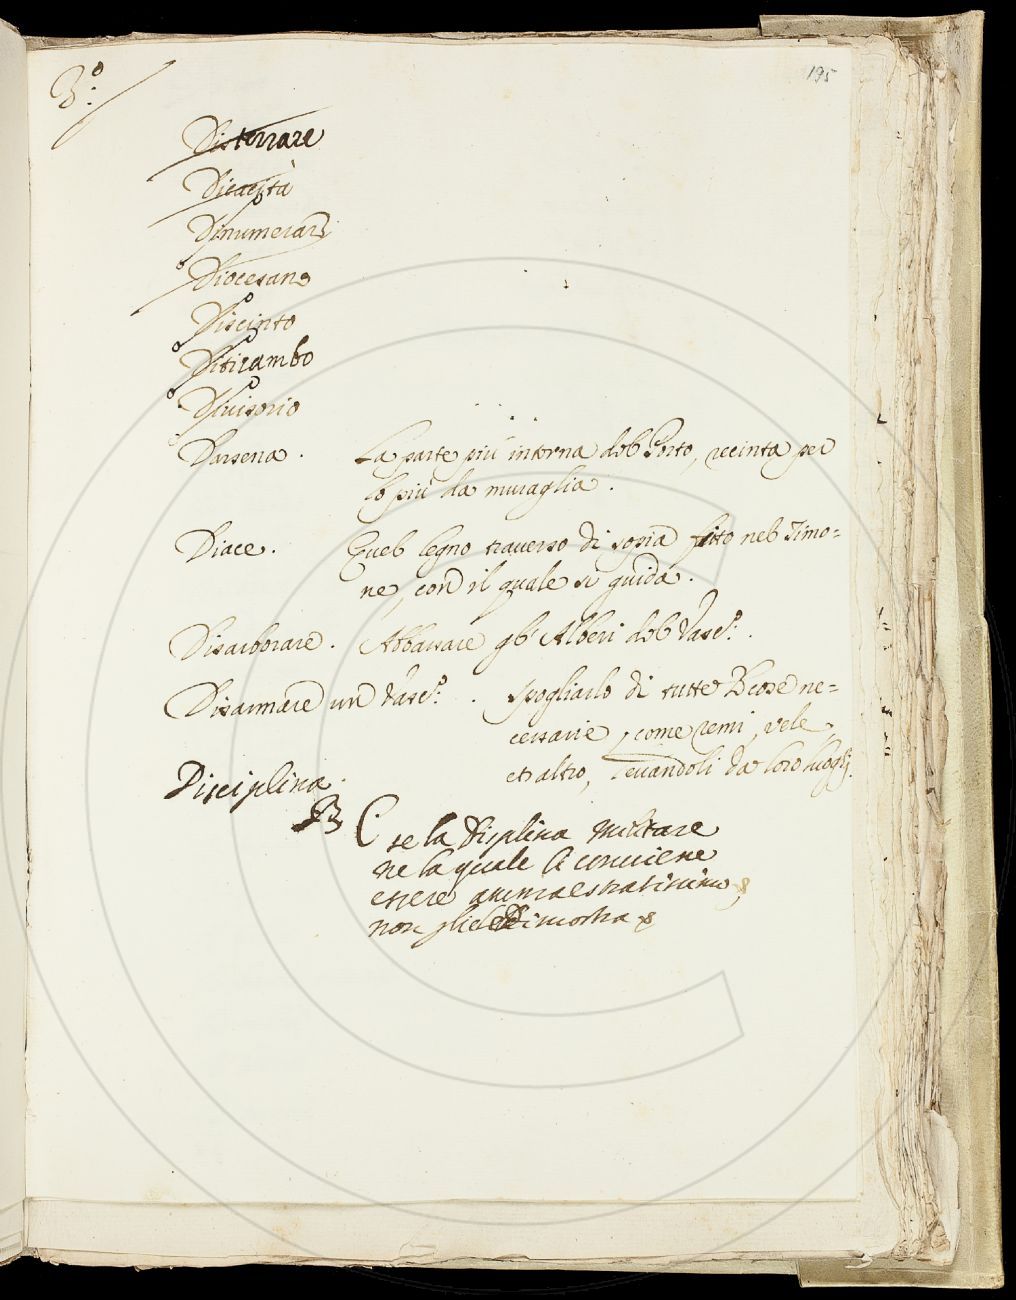 3.º
195
Disterrare
Dicacità
Dinumerare
Diocesano
Discinto
Ditirambo
Divisorio
Darsena. La parte più interna del Porto, recinta per
lo più da muraglia.
Diace. Quel legno traverso di sopra fitto nel Timo=
ne, con il quale si guida.
Disarborare. Abbassare gl' Alberi del Vasc.º.
Disarmare un Vasc.º. Spogliarlo di tutte le cose ne=
cessarie, come remi, vele,
et altro, levandoli da loro luoghi.
Disciplina.
se la Displina militare
ne la quale le conviene
essere ammaestratissimo,
non dimostra